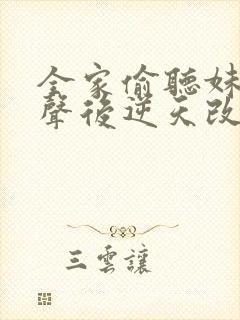 全家偷聽妹
聲後逆天改
三雲讓